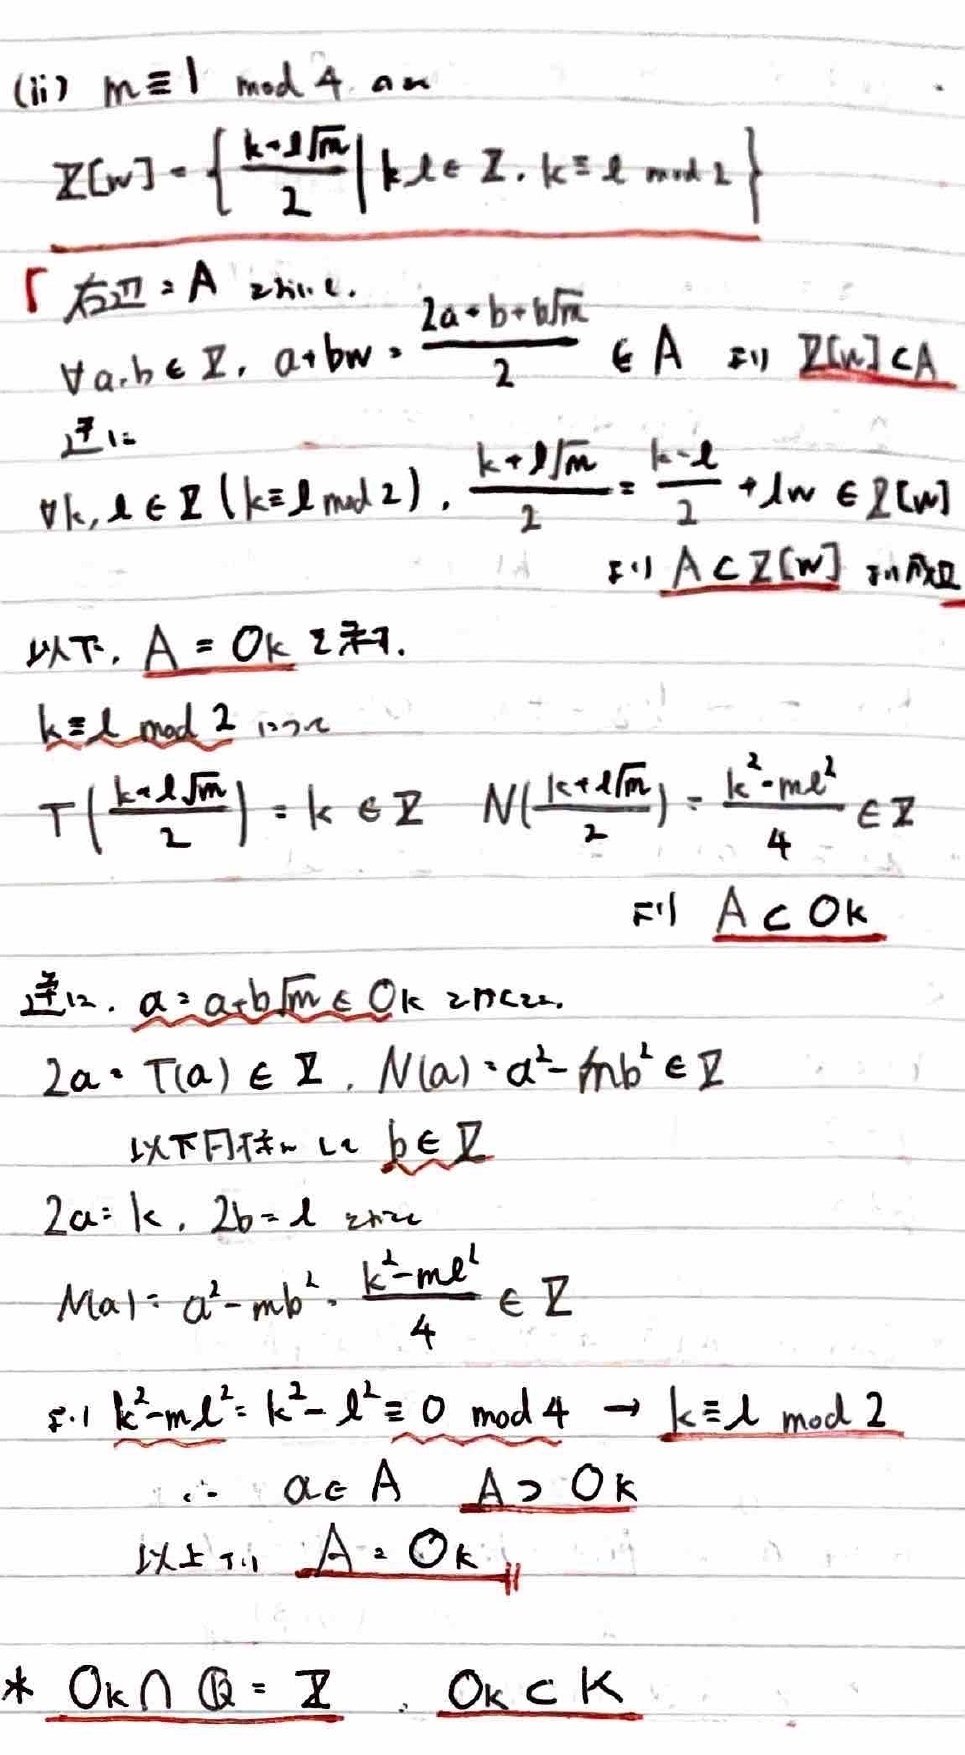 (ii) m≡1 mod 4 のとき
Z[w] = { (k+l√m)/2 | k,l∈Z, k≡l mod 2 }
「右辺=A とおいて.
∀a,b∈Z, a+bw = (2a+b+b√m)/2 ∈ A より Z[w]⊂A
逆に
∀k,l∈Z (k≡l mod 2), (k+l√m)/2 = (k-l)/2 + lw ∈ Z[w]
より A⊂Z[w] より成立
以下, A = Ok を示す.
k≡l mod 2 について
T((k+l√m)/2) = k ∈ Z N((k+l√m)/2) = (k²-ml²)/4 ∈ Z
より A⊂Ok
逆に. α=a+b√m∈Ok とおくと.
2a = T(α) ∈ Z, N(α) = a²-mb² ∈ Z
以下同様にして b∈Z
2a=k, 2b=l とおくと
N(α) = a²-mb² = (k²-ml²)/4 ∈ Z
より k²-ml² = k²-l² ≡ 0 mod 4 → k≡l mod 2
∴ α∈A A⊃Ok
以上より A = Ok
* Ok∩Q = Z . Ok⊂K